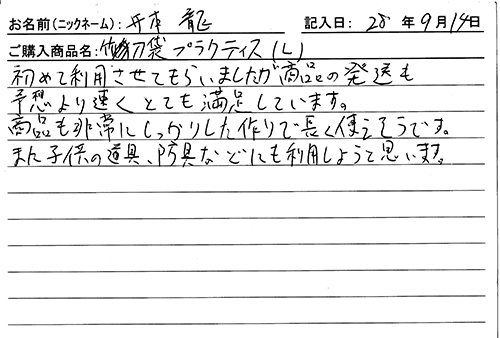 お名前(ニックネーム): 井本 龍 記入日: 28 年 9月 14日
ご購入商品名: 竹刀袋 プラクティス(L)
初めて利用させてもらいましたが商品の発送も
予想より速くとても満足しています。
商品も非常にしっかりした作りで長く使えそうです。
また子供の道具、防具などにも利用しようと思います。